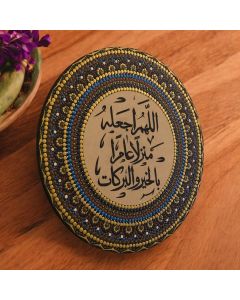 اللهم اجعله
منزلا عامرا
بالخير والبركات